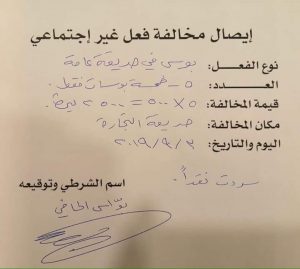 إيصال مخالفة فعل غير إجتماعي
نوع الفعل: بوس في حديقة عامة
العدد: ٥ - خمسة بوسات فقط.
قيمة المخالفة: ٥ × ٥٠٠ = ٢٥٠٠ ليرة
مكان المخالفة: حديقة التجارة
اليوم والتاريخ: ٢٠١٩/٩/٢
سددت نقداً.
اسم الشرطي وتوقيعه